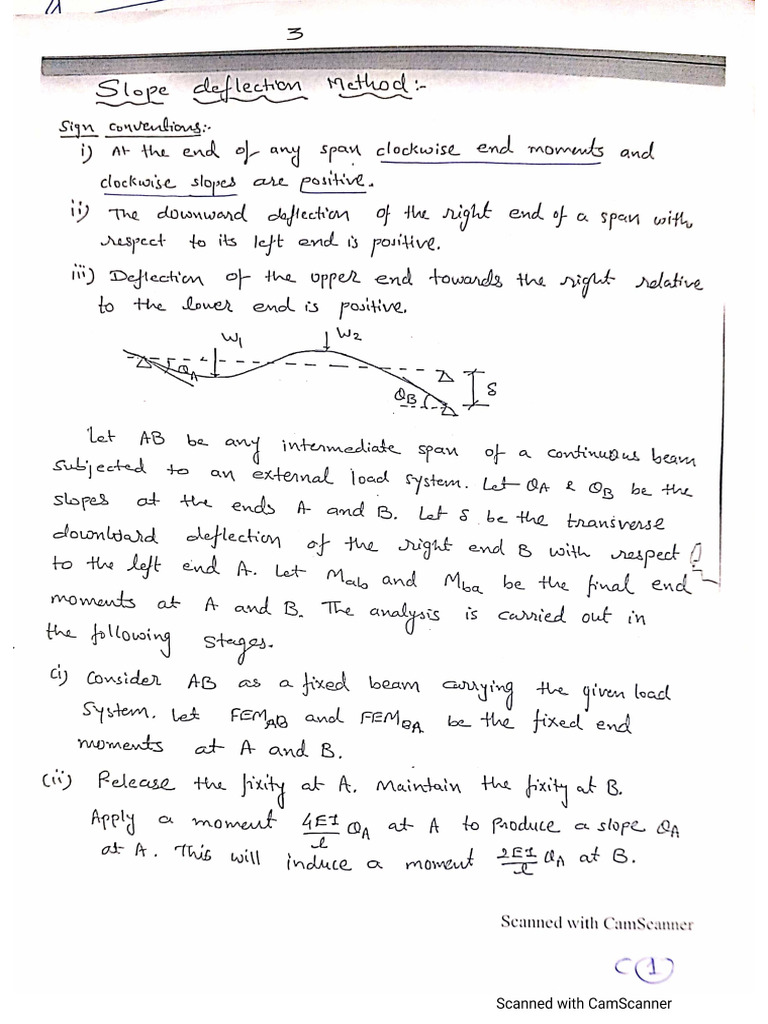 3
Slope deflection Method:-
Sign conventions:-
i) At the end of any span clockwise end moments and
clockwise slopes are positive.
ii) The downward deflection of the right end of a span with
respect to its left end is positive.
iii) Deflection of the upper end towards the right relative
to the lower end is positive.
W1 W2
θA θB δ
Let AB be any intermediate span of a continuous beam
subjected to an external load system. Let θA & θB be the
slopes at the ends A and B. Let δ be the transverse
downward deflection of the right end B with respect
to the left end A. Let Mab and Mba be the final end
moments at A and B. The analysis is carried out in
the following stages.
(i) Consider AB as a fixed beam carrying the given load
system. Let FEMAB and FEMBA be the fixed end
moments at A and B.
(ii) Release the fixity at A. Maintain the fixity at B.
Apply a moment 4EI/l θA at A to produce a slope θA
at A. This will induce a moment 2EI/l θA at B.
Scanned with CamScanner
(1)
Scanned with CamScanner